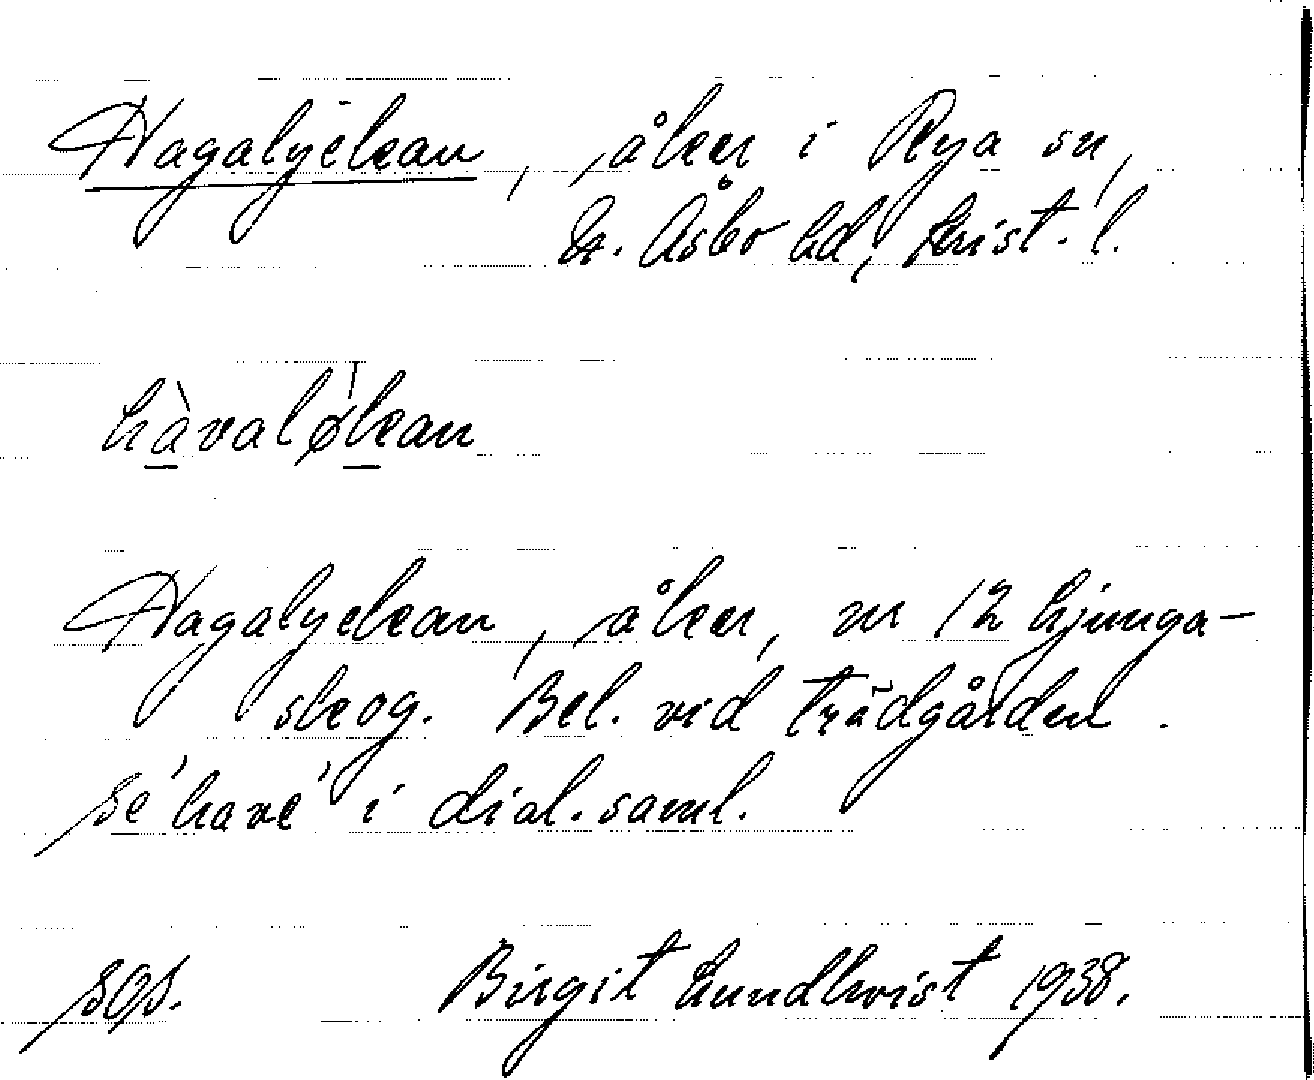 Hagalyckan, åker i Rya sn,
N. Åsbo hd, Krist. l.
hàvaløkan
Hagalyckan, åker, nr 12 Ljunga-
skog. Bel. vid trädgården.
Se 'have' i dial. saml.
sgs.
Birgit Lundkvist 1938.